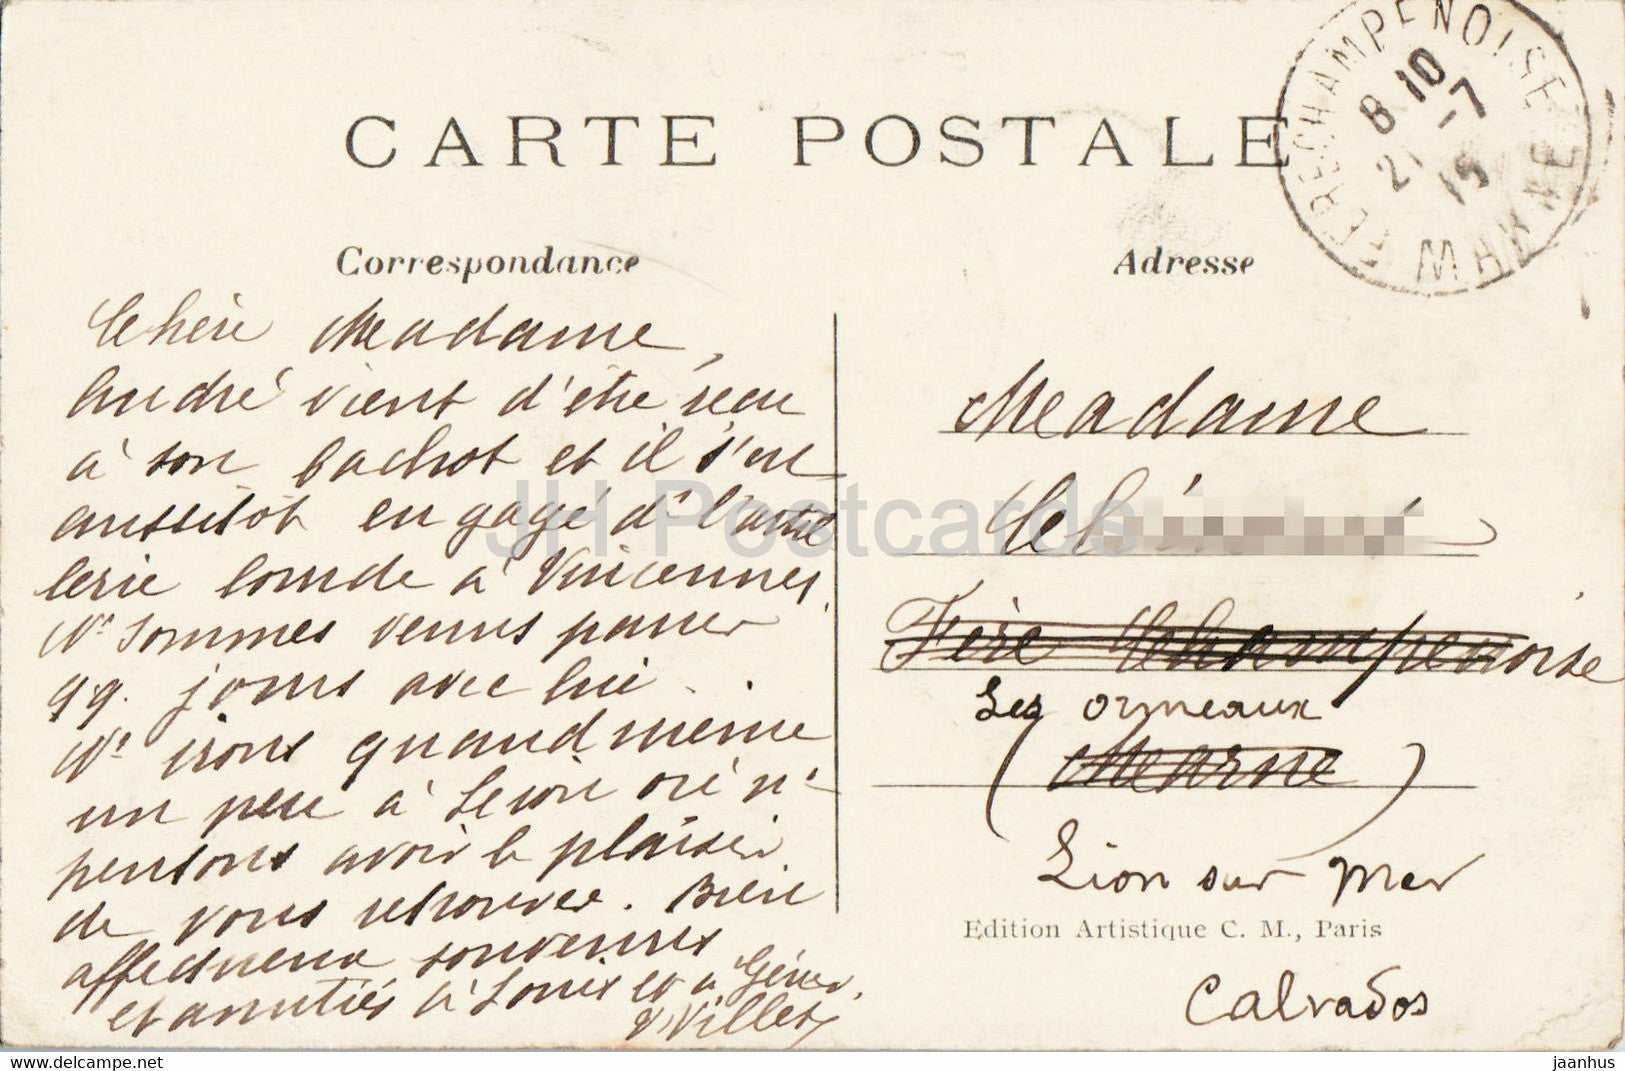 CARTE POSTALE
FERE CHAMPENOISE
8 10
21 -7
15
MARNE
Correspondance
Adresse
Chère Madame,
André vient d'être reçu
à son bachot et il s'en
aussitôt engagé d. l'artil
lerie lourde à Vincennes.
Ns sommes venus passer
qq. jours avec lui..
Ns irons quand même
un peu à Lion où n.
pensons avoir le plaisir
de vous retrouver. Bien
affectueux souvenirs
et amitiés à Louis et à
Villet
Madame
Fère Champenoise
Les ormeaux
(Marne)
Lion sur mer
Edition Artistique C. M., Paris
Calvados
JH Postcards
delcampe.net
jaanhus